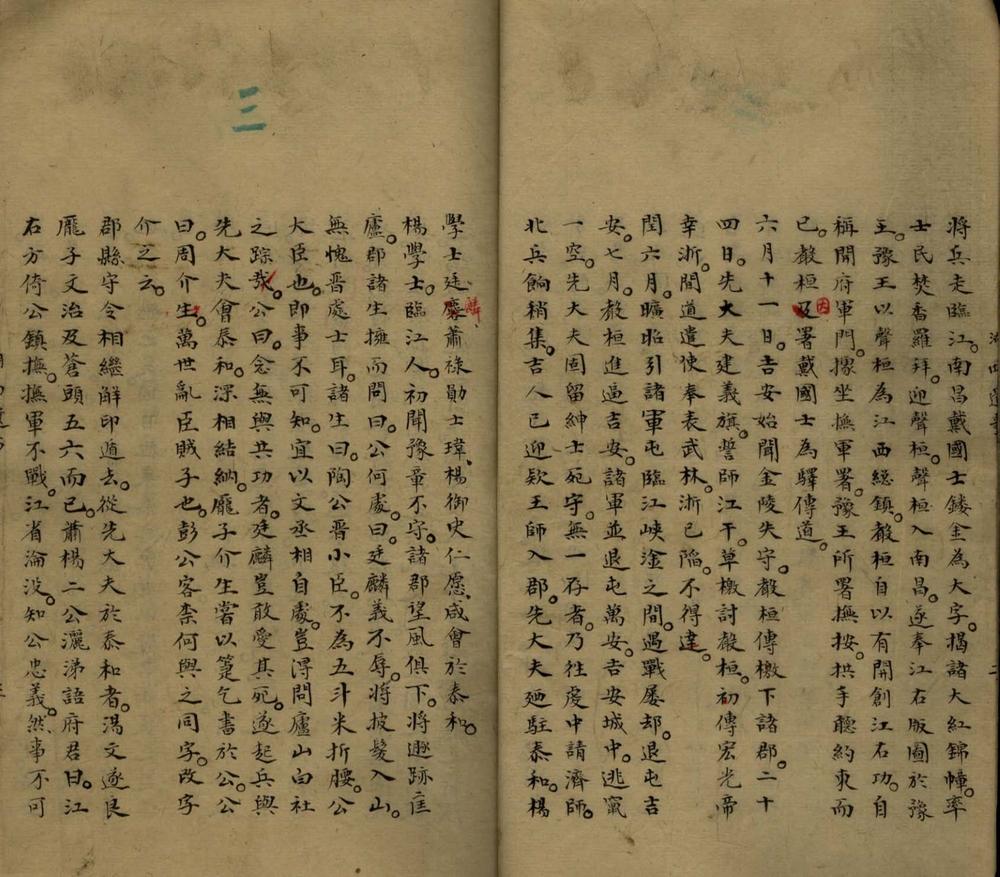 將兵走臨江。南昌戴國士鏤金為大字。揭諸大紅錦幛。率
士民焚香羅拜。迎聲桓。聲桓入南昌。遂奉江右版圖於豫
王。豫王以聲桓為江西總鎮。聲桓自以有開創江右功。自
稱開府軍門。據坐撫軍署。豫王所署撫按。拱手聽約束而
已。聲桓因署戴國士為驛傳道。
六月十一日。吉安始聞金陵失守。聲桓傳檄下諸郡。二十
四日。先大夫建義旗。誓師江干。草檄討聲桓。初傳宏光帝
幸浙。間道遣使奉表武林。浙已陷。不得達。
閏六月。曠昭引諸軍屯臨江峽淦之間。遇戰屢却。退屯吉
安。七月。聲桓進逼吉安。諸軍並退屯萬安。吉安城中。逃竄
一空。先大夫固留紳士死守。無一存者。乃往虔中請濟師。
北兵餉稍集。吉人已迎欵王師入郡。先大夫廼駐泰和。楊
三
學士廷麟蕭祿勛士瑋、楊御史仁愿、咸會於泰和。
楊學士。臨江人。初聞豫章不守。諸郡望風俱下。將遯跡匡
廬。郡諸生擁而問曰。公何處。曰。廷麟義不辱。將披髮入山。
無愧晋處士耳。諸生曰。陶公晋小臣。不為五斗米折腰。公
大臣也。即事不可知。宜以文丞相自處。豈得問廬山白社
之踪哉。公曰。念無與共功者。廷麟豈敢愛其死。遂起兵與
先大夫會泰和。深相結納。龐子介生嘗以箋乞書於公。公
曰。周介生。萬世亂臣賊子也。彭公客柰何與之同字。改字
介之云。
郡縣守令相繼解印遁去。從先大夫於泰和者。馮文遂良
龐子文治及蒼頭五六而已。蕭楊二公灑涕語府君曰。江
右方倚公鎮撫。撫軍不戰。江省淪没。知公忠義。然事不可